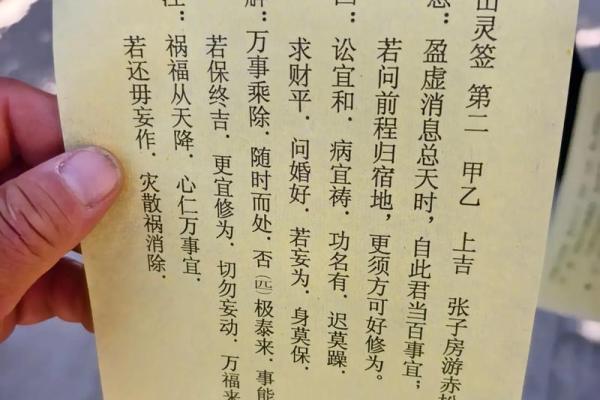 山灵签 第二 甲乙 上吉 张子房游赤松
: 盈虚消息总天时，自此君当百事宜；
若问前程归宿地，更须方可好修为。
曰: 讼宜和．病宜祷．功名有．迟莫躁．
求财平．问婚好．若妄为．身莫保．
解: 万事乘除．随时而处．否(匹)极泰来．事能
若保终吉．更宜修为．切勿妄动．万福来
注: 祸福从天降．心仁万事宜．
若还毋妄作．灾散祸消除．